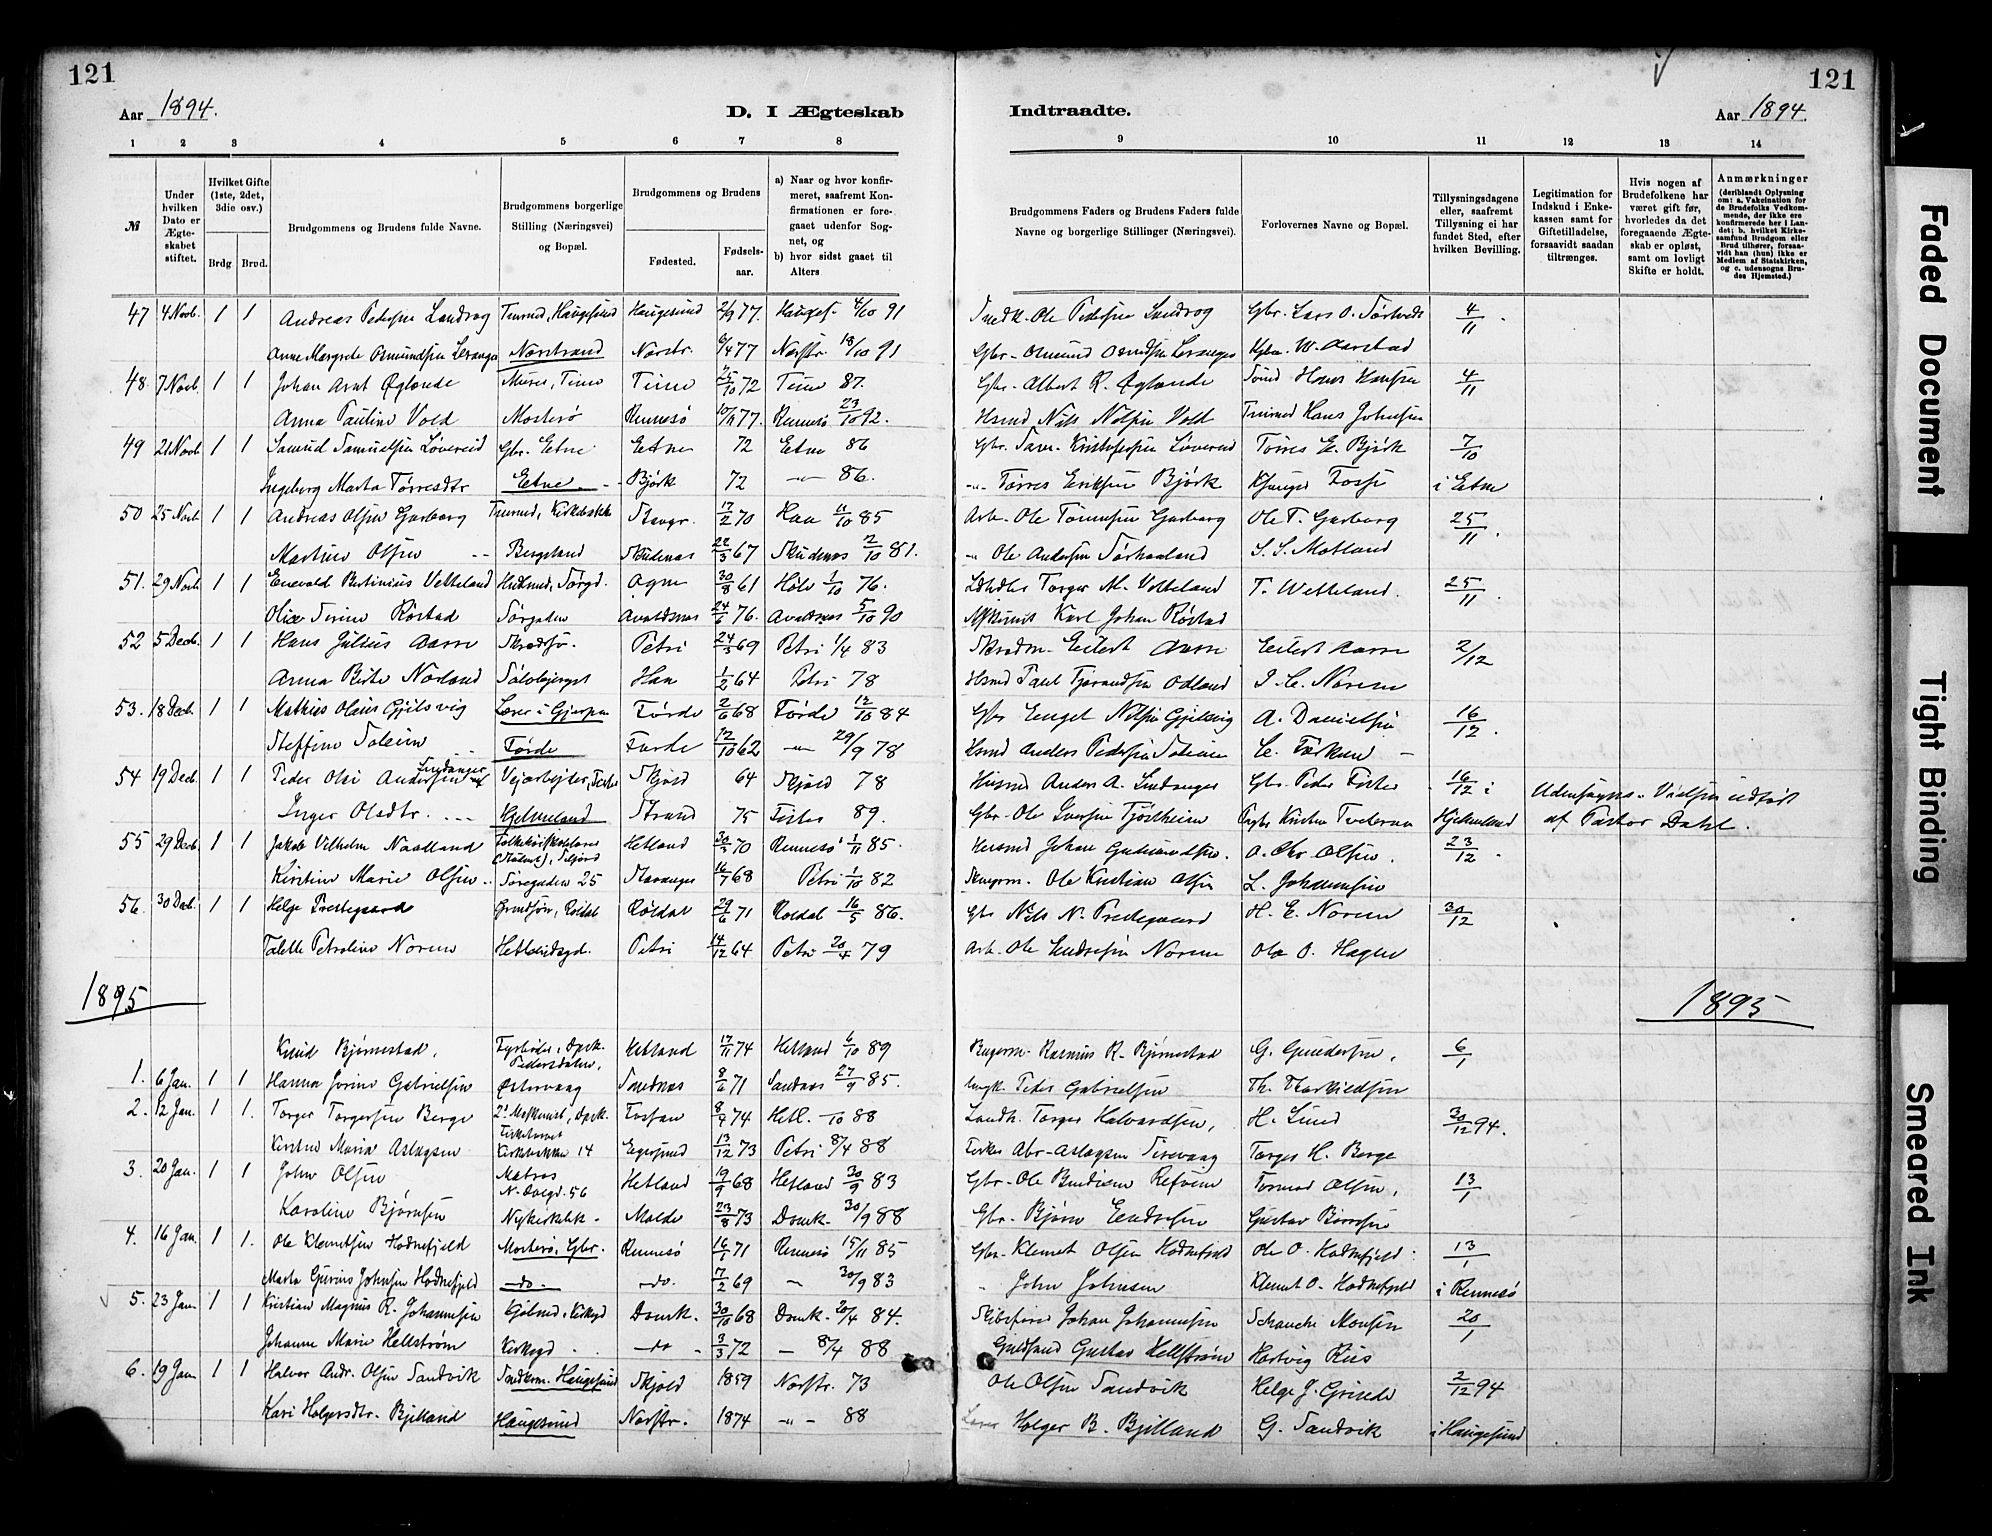 121
Aar 1894.
D. I Ægteskab
1 2 3 4 5 6 7 8
№
Under hvilken Dato er Ægteskabet stiftet.
Hvilket Gifte (1ste, 2det, 3die osv.)
Brdg. Brud.
Brudgommens og Brudens fulde Navne.
Brudgommens borgerlige Stilling (Næringsvei) og Bopæl.
Brudgommens og Brudens
Fødested.
Fødselsaar.
a) Naar og hvor konfirmeret, saafremt Konfirmationen er foregaaet udenfor Sognet, og
b) hvor sidst gaaet til Alters
47 4 Novb. 1 1 Andreas Pedersen Landrog Haugesund 77. 4/10 91
Anne Margrete Osmundsen Norstrand 6/4 77 18/10 91
48. 7 Novb. 1 1 Johan Arnt Øglænde Murer, Time Time 25/10 72 Time 87.
Anna Pauline Vold Mosterø Rennesø 77. Rennesø 23/10 92.
49 21 Novb 1 1 Samuel Samuelsen Løvereid Gbr. Etne Etne 72 Etne 86
Ingeborg Marta Tørresdtr Etne Bjørk 72 -"- 86.
50 25 Novb. 1 1 Andreas Olsen Garborg Stavgr. 17/2 70 Haa 11/10 85
Martine Olsen Bergeland Skudenæs 22/3 67 Skudenæs 2/10 81.
51. 29 Novb 1 1 Enevald Bertinius Vetteland Ogne 30/8 61 Høle 1/10 76.
Olise Serine Røstad Sørgaden Avaldsnæs 24/6 76. Avaldsnæs 5/10 90
52 5 Decb. 1 1 Hans Julius Aarre Petri 24/3 69 Petri 1/4 83
Anna Berte Norland Haa 1/2 64 Petri 78
53. 18 Decb. 1 1 Mathias Olaus Gjelsvig Lærer i Gjerpen Førde 2/6 68 Førde 12/10 84
Steffine Soleim Førde Førde 12/10 62 -"- 29/9 78
54 19 Decb 1 1 Peder Olai Andersen Lindanger Vejarbejder, Fister Skjold 64 Skjold 78
Inger Olsdtr. Hjelmeland Strand 75 Fister 89.
55 29 Decb. 1 1 Jakob Vilhelm Naalland Folkehøiskolelærer Hetland 30/3 70 Rennesø 1/11 85.
Kirstine Marie Olsen Søregaden 25 Stavanger 16/7 68 Petri 1/10 82
56. 30 Decb. 1 1 Helge Prestegaard Røldal Røldal 29/6 71 Røldal 16/5 86.
Tolette Petroline Norem Hetlandsgd. Petri 14/12 64 Petri 20/4 79
1895
Knud Bjørnestad. Pedersdalen. Hetland 17/11 74 Hetland 6/10 89
1. 6 Jan. 1 1 Hanna Jorine Gabrielsen Østervaag Sandnæs 8/6 71 Sandnæs 27/9 85.
2. 12 Jan. 1 1. Torger Torgersen Berge Fossan 8/4 74 Hetl. 88
Kirstine Maria Aslagsen 14 Egersund 13/12 73 Petri 8/4 88
3. 20 Jan. 1 1 John Olsen Matros Hetland 19/9 68 Hetland 30/9 83
Karoline Bjørnsen Molde 23/8 73 Domk. 30/9 88
4. 16 Jan. 1 1. Ole Klemetsen Hodnefjeld Mosterø, Gbr. Rennesø 16/1 71 Rennesø 15/11 85
Marta Gurine Johnsen Hodnefjeld -do- -do. 7/2 69 " 30/9 83
5. 23 Jan. 1 1 Kristian Magnus R. Johannesen Domk. 30/10 68 Domk. 20/4 84.
Johanne Marie Hellstrøm Kirkegd -do- 3/3 72 - 8/4 88
6. 19 Jan 1 1 Halvor Andr. Olsen Sandvik Haugesund Skjold 1859 Norstr. 73
Kari Holgersdtr. Bjelland Haugesund Norstr. 1874 -"- 88
121
Indtraadte.
Aar 1894.
9 10 11 12 13 14
Brudgommens Faders og Brudens Faders fulde Navne og borgerlige Stillinger (Næringsvei).
Forlovernes Navne og Bopæl.
Tillysningsdagene eller, saafremt Tillysning ei har fundet Sted, efter hvilken Bevilling.
Legitimation for Indskud i Enkekassen samt for Giftetilladelse, forsaavidt saadan tiltrænges.
Hvis nogen af Brudefolkene har været gift før, hvorledes da det foregaaende Ægteskab er opløst, samt om lovligt Skifte er holdt.
Anmærkninger (deriblandt Oplysning om: a. Vakcination for de Brudefolks Vedkommende, der ikke ere konfirmerede her i Landet; b. hvilket Kirkesamfund Brudgom eller Brud tilhører, forsaavidt han (hun) ikke er Medlem af Statskirken, og c. udensogns Brudes Hjemsted.)
Ole Pedersen Landrog 4/11.
W. Aarstad
Gbr. Albert R. Øglænde Hans Hansen 4/11
Hsmd Nils Nilsen Vold Hans Johnsen
Løvereid Tørres E. Bjørk 7/10
-"- Tørres Eriksen Bjørk i Etne
Arb. Ole Tønnesen Garborg Ole T. Garborg 25/11.
" Ole Andersen S. S. Motland
Torger M. Vetteland T. Wetteland. 25/11.
Karl Johan Røstad
Eilert Aarre Eilert Aarre 2/12
Hsmd Paul J. C. Norem
Gbr Enget Nilsen Gjelsvig A. Danielsen 16/12.
Hsmd Anders Pedersen Soleim
Husmd Anders A. Lindanger Gbr. Peder Fister 16/12 i Udensogns. Vielsen udført
Gbr. Ole Iversen Tjøstheim Hjelmeland af Pastor Dahl.
Husmd Johan Gudmundsen. A. Chr Olsen. 23/12.
Ole Kristian Olsen L. Johannesen
Gbr Nils N. Prestegaard H. E. Norem 30/12
Arb. Ole Endresen Norem Ola O. Hagen
1895
Rasmus R. Bjørnestad G. Gundersen, 6/1
Peder Gabrielsen Th. Thorkildsen
Landh. Torger Halvardsen, H. Lund 30/12 94.
Abr. Aslagsen Sirevaag Torger H. Berge
Gbr. Ole Bendiksen Refheim Tormod Olsen, 13/1
Gbr. Bjørn Endresen Gustav Bjørnsen
Gbr. Klemet Olsen Hodnefjeld Ole O. Hodnefjeld. 13/1
" John Johnsen Klemet O. Hodnefjeld i Rennesø
Skibsfører Johan Johannesen Schanche Monsen 20/1
Guldsmd Gustav Hellstrøm Hartvig Riis
Ole Olsen Sandvik Helge J. Grinde 2/12 94
Lærer Holger B. Bjelland G. Sandvik i Haugesund
Faded Document
Tight Binding
Smeared Ink